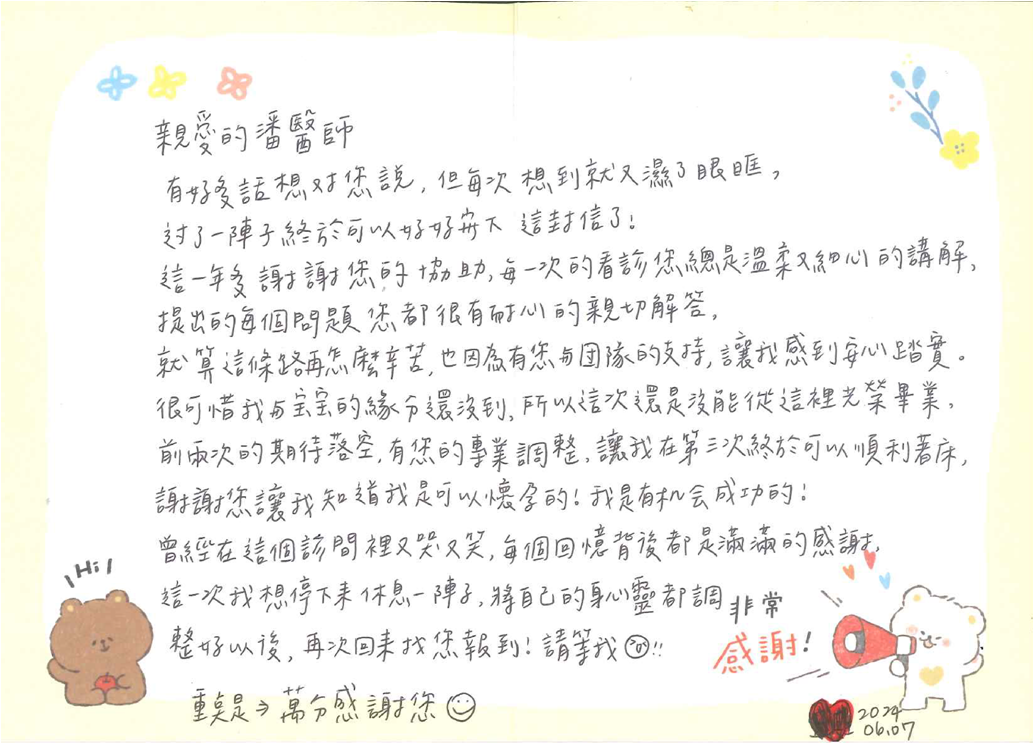 親愛的潘醫師
有好多話想对您說，但每次想到就又濕了眼眶，
过了一陣子終於可以好好安下 這封信了！
這一年多謝謝您的協助，每一次的看診您總是溫柔又細心的講解，
提出的每個問題您都很有耐心的親切解答，
就算這條路再怎麼辛苦，也因為有您与团隊的支持，讓我感到安心踏實。
很可惜我与宝宝的緣分還沒到，所以這次還是沒能從這裡光榮畢業，
前兩次的期待落空，有您的專業調整，讓我在第三次終於可以順利著床，
謝謝您讓我知道我是可以懷孕的！我是有机会成功的！
曾經在這個診間裡又哭又笑，每個回憶背後都是滿滿的感謝，
這一次我想停下来休息一陣子，將自己的身心靈都調
整好以後，再次回来找您報到！請等我!!
重點是→萬分感謝您
Hi！
非常
感謝！
2024
06.07